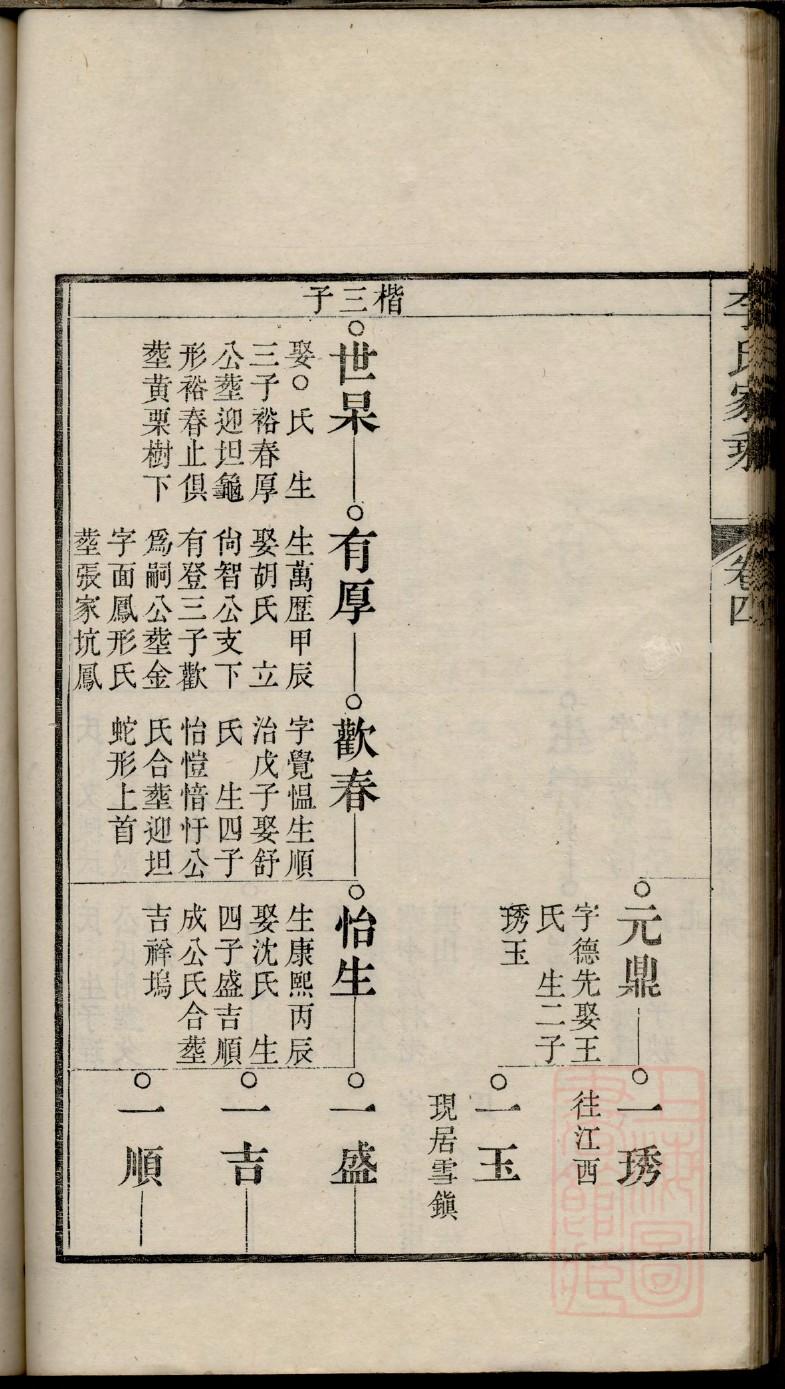 李氏家乘
卷四
楷三子
元鼎
字德先娶王
氏 生二子
琇玉
一琇
往江西
一玉
現居雪鎭
世杲
娶○氏 生
三子裕春厚
公塟迎坦龜
形裕春止俱
塟黃栗樹下
有厚
生萬歷甲辰
娶胡氏 立
尙智公支下
有登三子歡
爲嗣公塟金
字面鳳形氏
塟張家坑鳳
歡春
字覺愠生順
治戊子娶舒
氏 生四子
怡愷愔忓公
氏合塟迎坦
蛇形上首
怡生
生康熙丙辰
娶沈氏 生
四子盛吉順
成公氏合塟
吉祥塢
一盛
一吉
一順